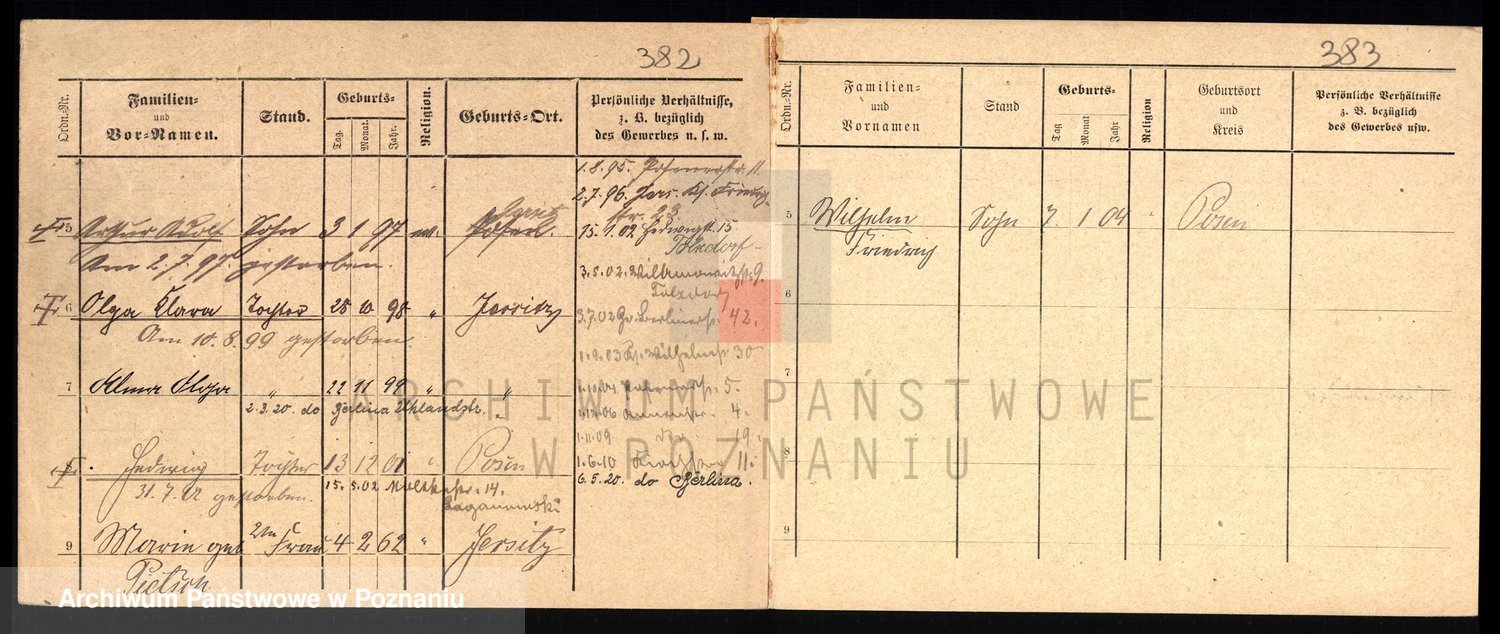 382
Ordn.-Nr. Familien- und Vor-Namen. Stand. Geburts- Tag. Monat. Jahr. Religion. Geburts-Ort. Persönliche Verhältnisse, z. B. bezüglich des Gewerbes u. s. w.
1.8.95. Posenerstr. 11.
2.7.96. Jers. Kl.
5 Arthur Adolf Sohn 3 1 97 ev. Jersitz Posen.
15.1.02 Hedwigstr. 15
Am 2.7.97. gestorben.
3.5.02. 9.
6 Olga Klara Tochter 25 10 98 " Jersitz
3.7.02 Gr. Berlinerstr. 42.
Am 10.8.99 gestorben.
1.9.03 Kl. Wilhelmstr 30
7 Alma Olga " 22 11 99 " "
1.10.04 5.
2.3.20. do Berlina Uhlandstr.
1.12.06 4.
1.11.09 19.
Hedwig Tochter 13 12 01 " Posen
1.6.10 11.
31.7.02 gestorben.
15.5.02 Moltkestr. 14.
6.5.20. do Berlina.
9 Marie geb 2te Frau 4 2 62 " Jersitz
Pietsch
383
Ordn.-Nr. Familien- und Vornamen Stand Geburts- Tag Monat Jahr Religion Geburtsort und Kreis Persönliche Verhältnisse z. B. bezüglich des Gewerbes usw.
5 Wilhelm Sohn 7. 1 04 " Posen
Friedrich
6
7
8
9
ARCHIWUM PAŃSTWOWE
W POZNANIU
Archiwum Państwowe w Poznaniu